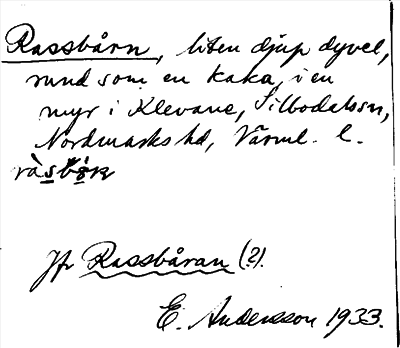 Rassbårn, liten djup dyvel,
rund som en kaka, i en
myr i Klevane, Silbodalssn,
Nordmarks hd, Värml. l.
Jfr Rassbåran (?).
E. Andersson 1933.